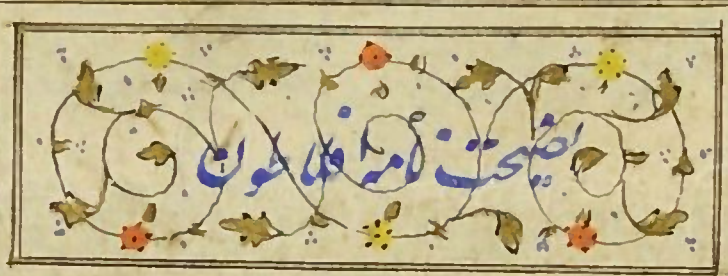 نصیحت نامۀ افلاطون